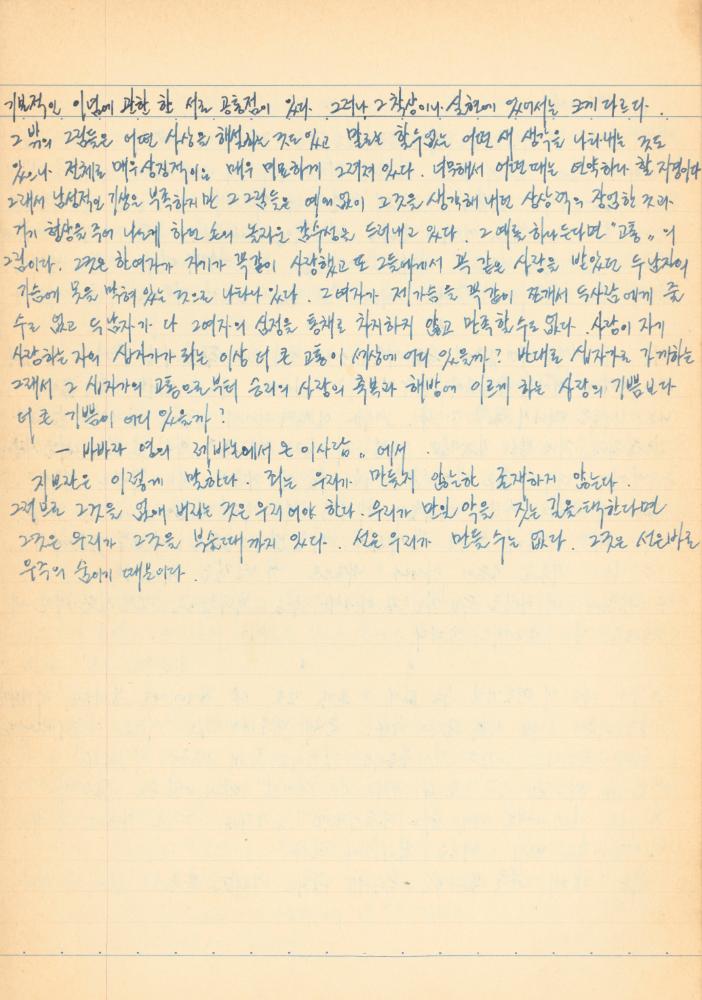 기본적인 이념에 관한 한 서로 공통점이 있다. 그러나 그 착상이나 실현에 있어서는 크게 다르다.
그 밖의 그림들은 어떤 사상을 해설하는 것도 있고 말로는 할 수 없는 어떤 새 생각을 나타내는 것도
있으나 전체로 매우 상징적이요 매우 미묘하게 그려져 있다. 너무해서 어떤 때는 연약하다 할 지경이다
그래서 남성적인 기상은 부족하지만 그 그림들은 예외 없이 그것을 생각해 내던 상상력의 장엄한 것과
거기 형상을 주어 나오게 하던 손의 놀라운 감수성을 드러내고 있다. 그 예를 하나 든다면 "고통"의
그림이다. 그것은 한 여자가 자기가 똑같이 사랑했고 또 그들에게서 똑 같은 사랑을 받았던 두 남자의
가슴에 못을 박혀 있는 것으로 나타나 있다. 그 여자가 제 가슴을 똑같이 쪼개서 두 사람에게 줄
수도 없고 두 남자가 다 그 여자의 심정을 통채로 차지하지 않고 만족할 수도 없다. 사랑이 자기
사랑하는 자의 십자가가 되는 이상 더 큰 고통이 세상에 어디 있을까? 반대로 십자가로 가게하는
그래서 그 십자가의 고통으로부터 승리의 사랑의 축복과 해방에 이르게 하는 사랑의 기쁨보다
더 큰 기쁨이 어디 있을까?
— 바바라 영의 레바논에서 온 이사람" 에서.
지브란은 이렇게 말한다. 죄는 우리가 만들지 않는한 존재하지 않는다.
그러므로 그것을 없애 버리는 것은 우리여야 한다. 우리가 만일 악을 짓는 길을 택한다면
그것은 우리가 그것을 부술때 까지 있다. 선은 우리가 만들 수는 없다. 그것은 선은 바로
우주의 숨이기 때문이다.